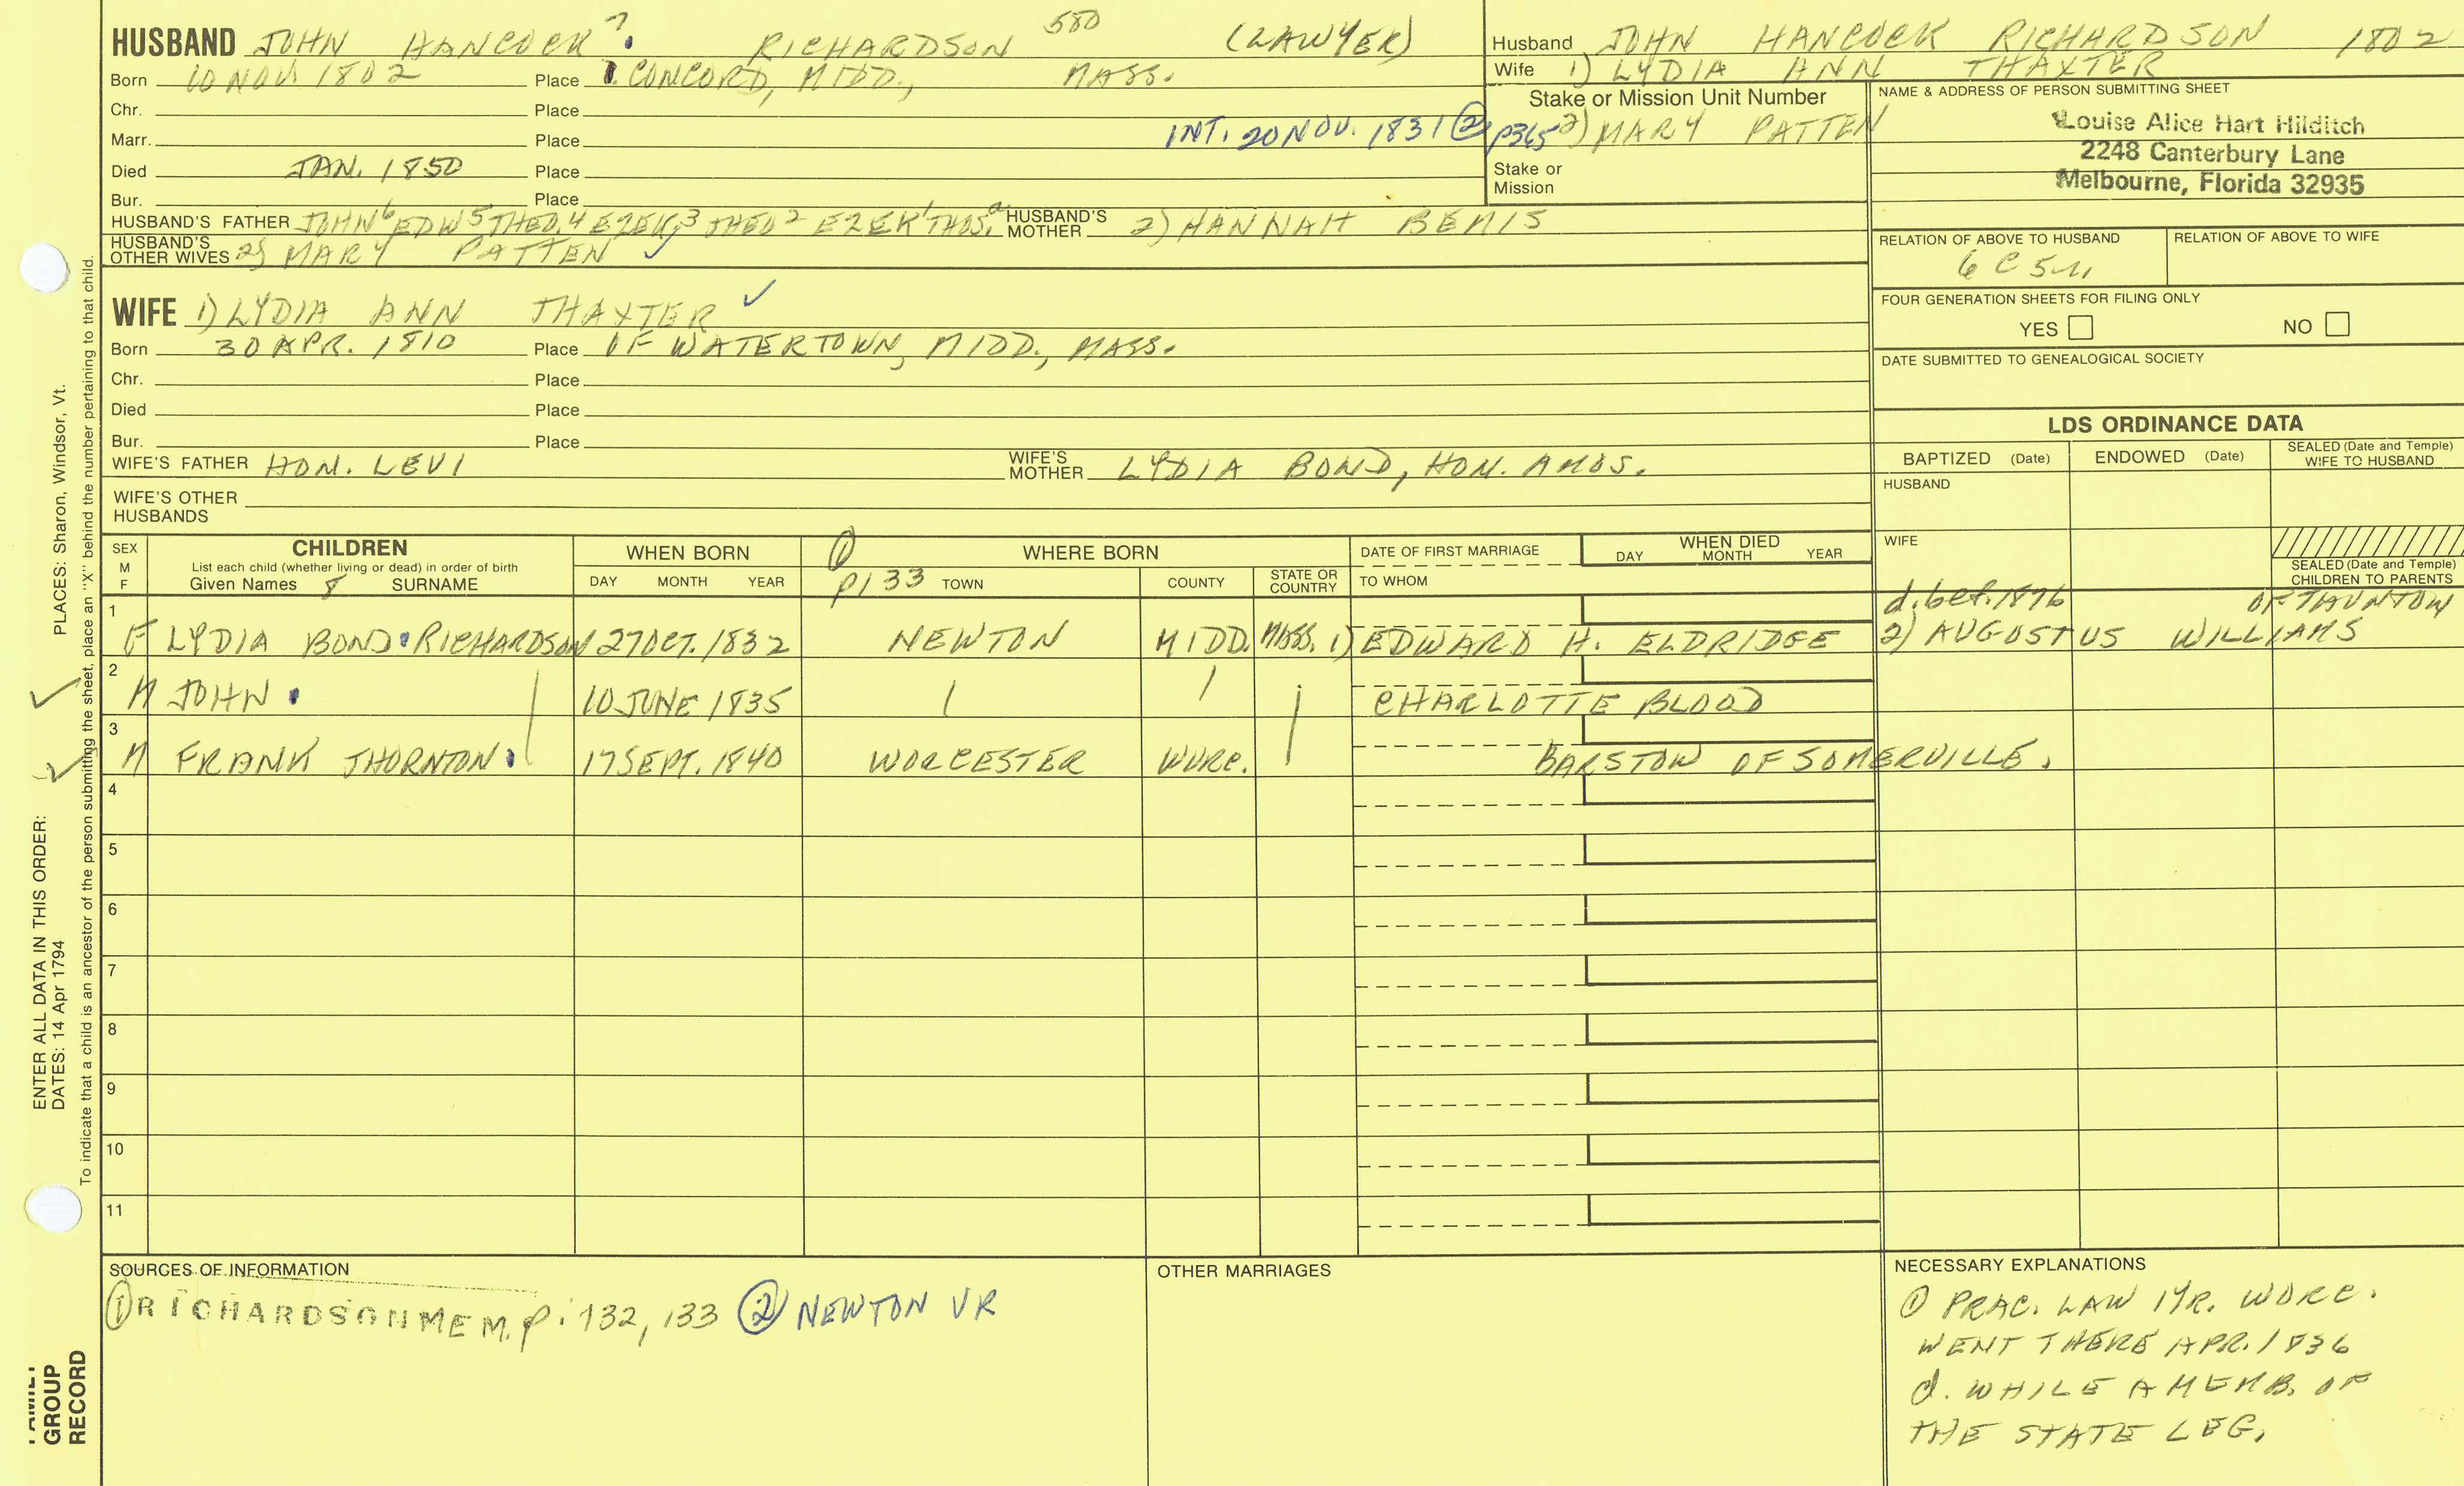 HUSBAND JOHN HANCOCK 7 RICHARDSON 580 (LAWYER)
Born 10 NOV. 1802 Place 1. CONCORD, MIDD., MASS.
Chr. Place
Marr. Place INT. 20 NOV. 1831 ② p365
Died JAN. 1850 Place
Bur. Place
HUSBAND'S FATHER JOHN 6 EDW 5 THEO. 4 EZEK, 3 THEO 2 EZEK 1 THOS. a HUSBAND'S MOTHER 2) HANNAH BEMIS
HUSBAND'S OTHER WIVES 2) MARY PATTEN ✓
Husband JOHN HANCOCK RICHARDSON 1802
Wife 1) LYDIA ANN THAXTER
Stake or Mission Unit Number
2) MARY PATTEN
Stake or
Mission
NAME & ADDRESS OF PERSON SUBMITTING SHEET
Louise Alice Hart Hilditch
2248 Canterbury Lane
Melbourne, Florida 32935
RELATION OF ABOVE TO HUSBAND RELATION OF ABOVE TO WIFE
6 C 5 r.
FOUR GENERATION SHEETS FOR FILING ONLY
YES NO
DATE SUBMITTED TO GENEALOGICAL SOCIETY
WIFE 1) LYDIA ANN THAXTER ✓
Born 30 APR. 1810 Place OF WATERTOWN, MIDD., MASS.
Chr. Place
Died Place
Bur. Place
WIFE'S FATHER HON. LEVI WIFE'S MOTHER LYDIA BOND, HON. AMOS.
WIFE'S OTHER
HUSBANDS
LDS ORDINANCE DATA
BAPTIZED (Date) ENDOWED (Date) SEALED (Date and Temple) WIFE TO HUSBAND
HUSBAND
WIFE
SEALED (Date and Temple)
CHILDREN TO PARENTS
SEX M F CHILDREN WHEN BORN ① WHERE BORN DATE OF FIRST MARRIAGE WHEN DIED
List each child (whether living or dead) in order of birth DAY MONTH YEAR
Given Names 8 SURNAME DAY MONTH YEAR p133 TOWN COUNTY STATE OR COUNTRY TO WHOM
1 d. bef. 1876 OF TAUNTON
F LYDIA BOND RICHARDSON 27 OCT. 1832 NEWTON MIDD. MASS. 1) EDWARD H. ELDRIDGE 2) AUGUSTUS WILLIAMS
2
✓ M JOHN 10 JUNE 1835 CHARLOTTE BLOOD
3
✓ M FRANK THORNTON 17 SEPT. 1840 WORCESTER WORC. BARSTOW OF SOMERVILLE.
4
5
6
7
8
9
10
11
SOURCES OF INFORMATION
① RICHARDSON MEM. p. 132, 133 ② NEWTON VR
OTHER MARRIAGES
NECESSARY EXPLANATIONS
① PRAC. LAW 1 YR. WORC.
WENT THERE APR. 1836
d. WHILE A MEMB. OF
THE STATE LEG.
ENTER ALL DATA IN THIS ORDER: PLACES: Sharon, Windsor, Vt.
DATES: 14 Apr 1794
To indicate that a child is an ancestor of the person submitting the sheet, place an "X" behind the number pertaining to that child.
FAMILY
GROUP
RECORD